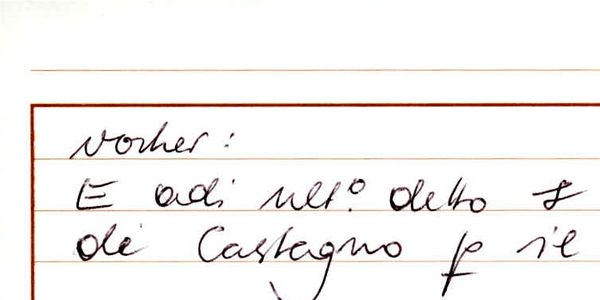 vorher:
E adi ult.o detto
di Castagno p il